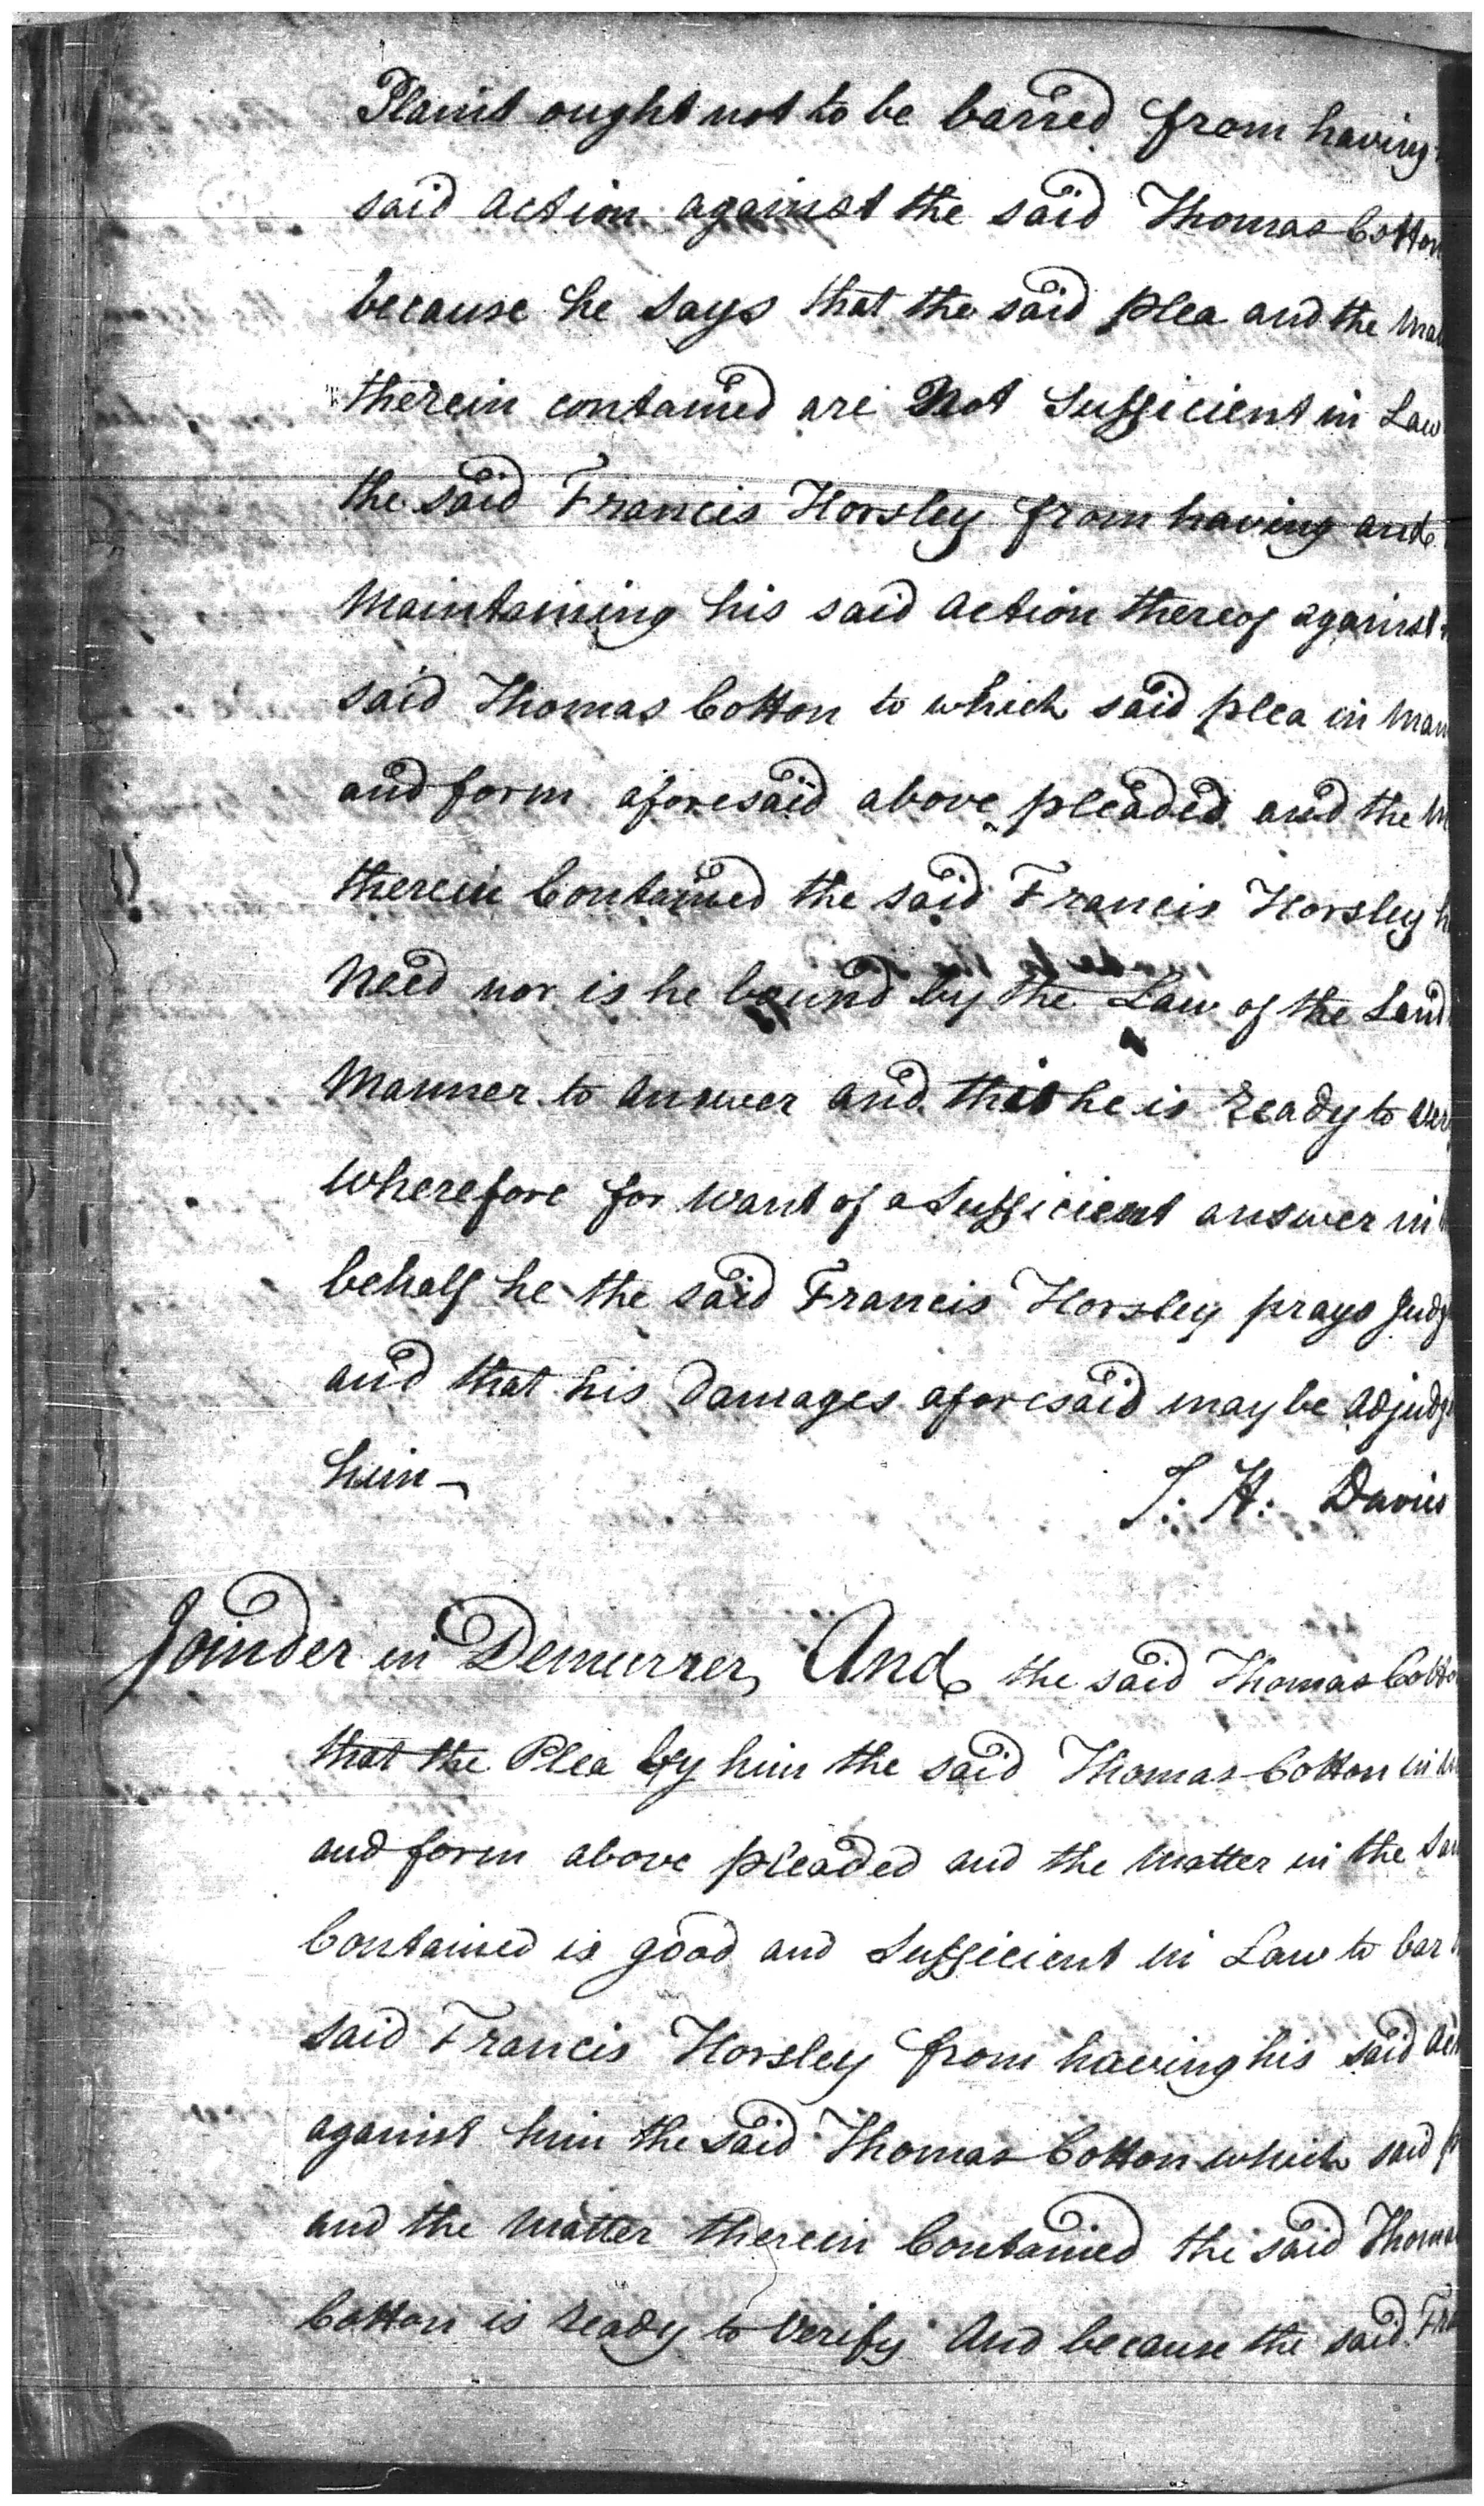 Plaint ought not to be barred from having
said action against the said Thomas Cotton
because he says that the said plea and the Mat
therein contained are Not Sufficient in Law
the said Francis Horsley from having and
Maintaining his said action thereof against
said Thomas Cotton to which said plea in Man
and form aforesaid above pleaded and the M
therein Contained the said Francis Horsley h
Need nor is he bound by the Law of the Land
Manner to answer and this he is ready to ver
wherefore for want of a Sufficient answer in
behalf he the said Francis Horsley prays Judg
and that his Damages aforesaid may be adjudg
him
J. H. Davies
Joinder in Demurrer, And the said Thomas Cotto
that the Plea by him the said Thomas Cotton in
and form above pleaded and the Matter in the Sam
Contained is good and Sufficient in Law to bar
said Francis Horsley from having his said act
against him the said Thomas Cotton which said
and the Matter therein Contained the said Thomas
Cotton is ready to Verify And because the said Fra